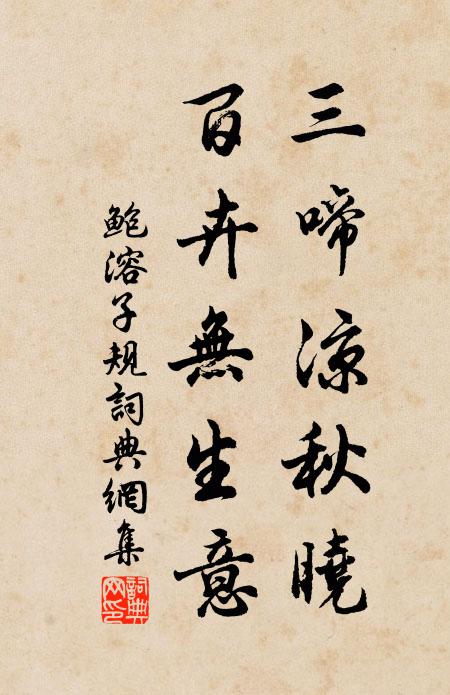 三啼涼秋曉
百卉無生意
鮑溶子規詞典網集
詞典網印